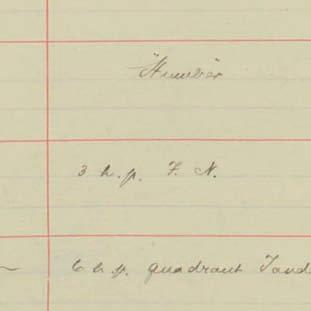 "Humber"
3 h.p. F. N.
6 h.p. quadrant Tand